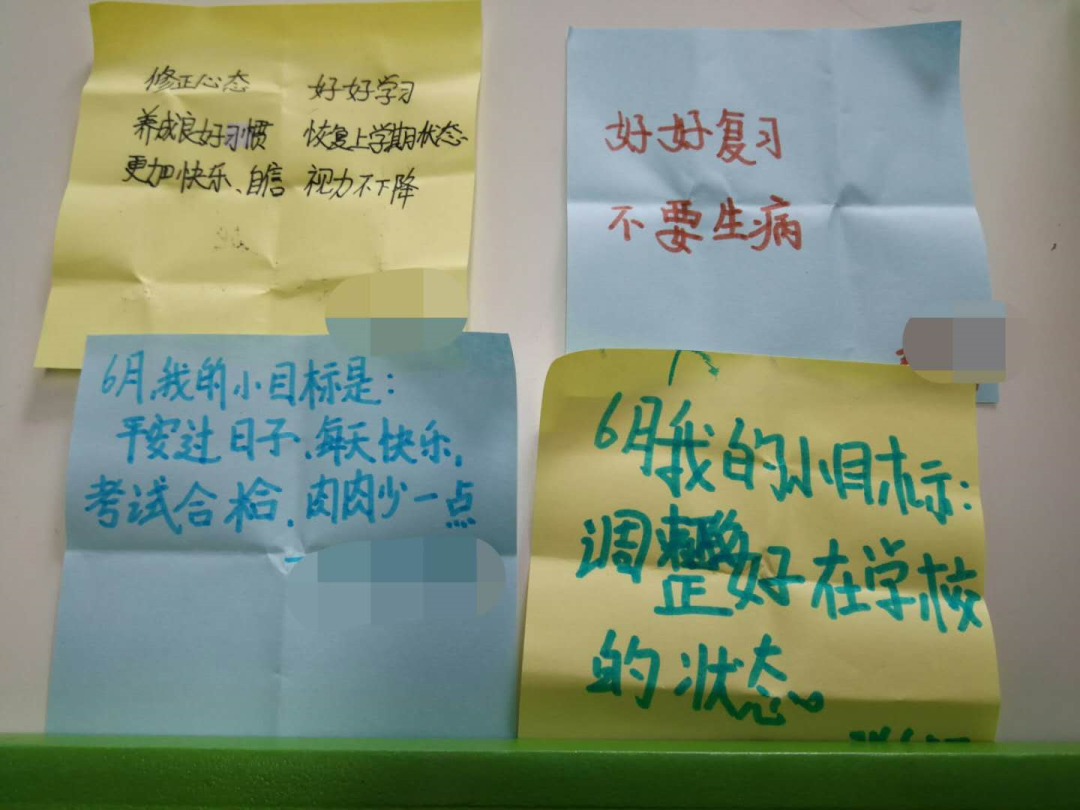 修正心态 好好学习
养成良好习惯 恢复上学期状态
更加快乐、自信 视力不下降
好好复习
不要生病
6月,我的小目标是:
平安过日子、每天快乐,
考试合格、肉肉少一点
6月我的小目标:
调整好在学校
的状态。